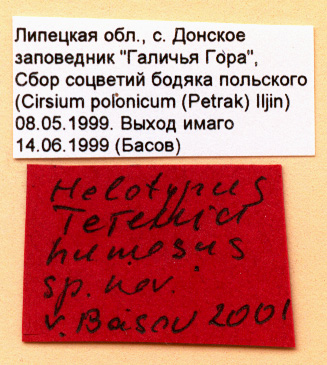 Липецкая обл., с. Донское
заповедник "Галичья Гора",
Сбор соцветий бодяка польского
(Cirsium polonicum (Petrak) Iljin)
08.05.1999. Выход имаго
14.06.1999 (Басов)
Holotypus
Terellia
humosus
sp. nov.
V. Basov 2001